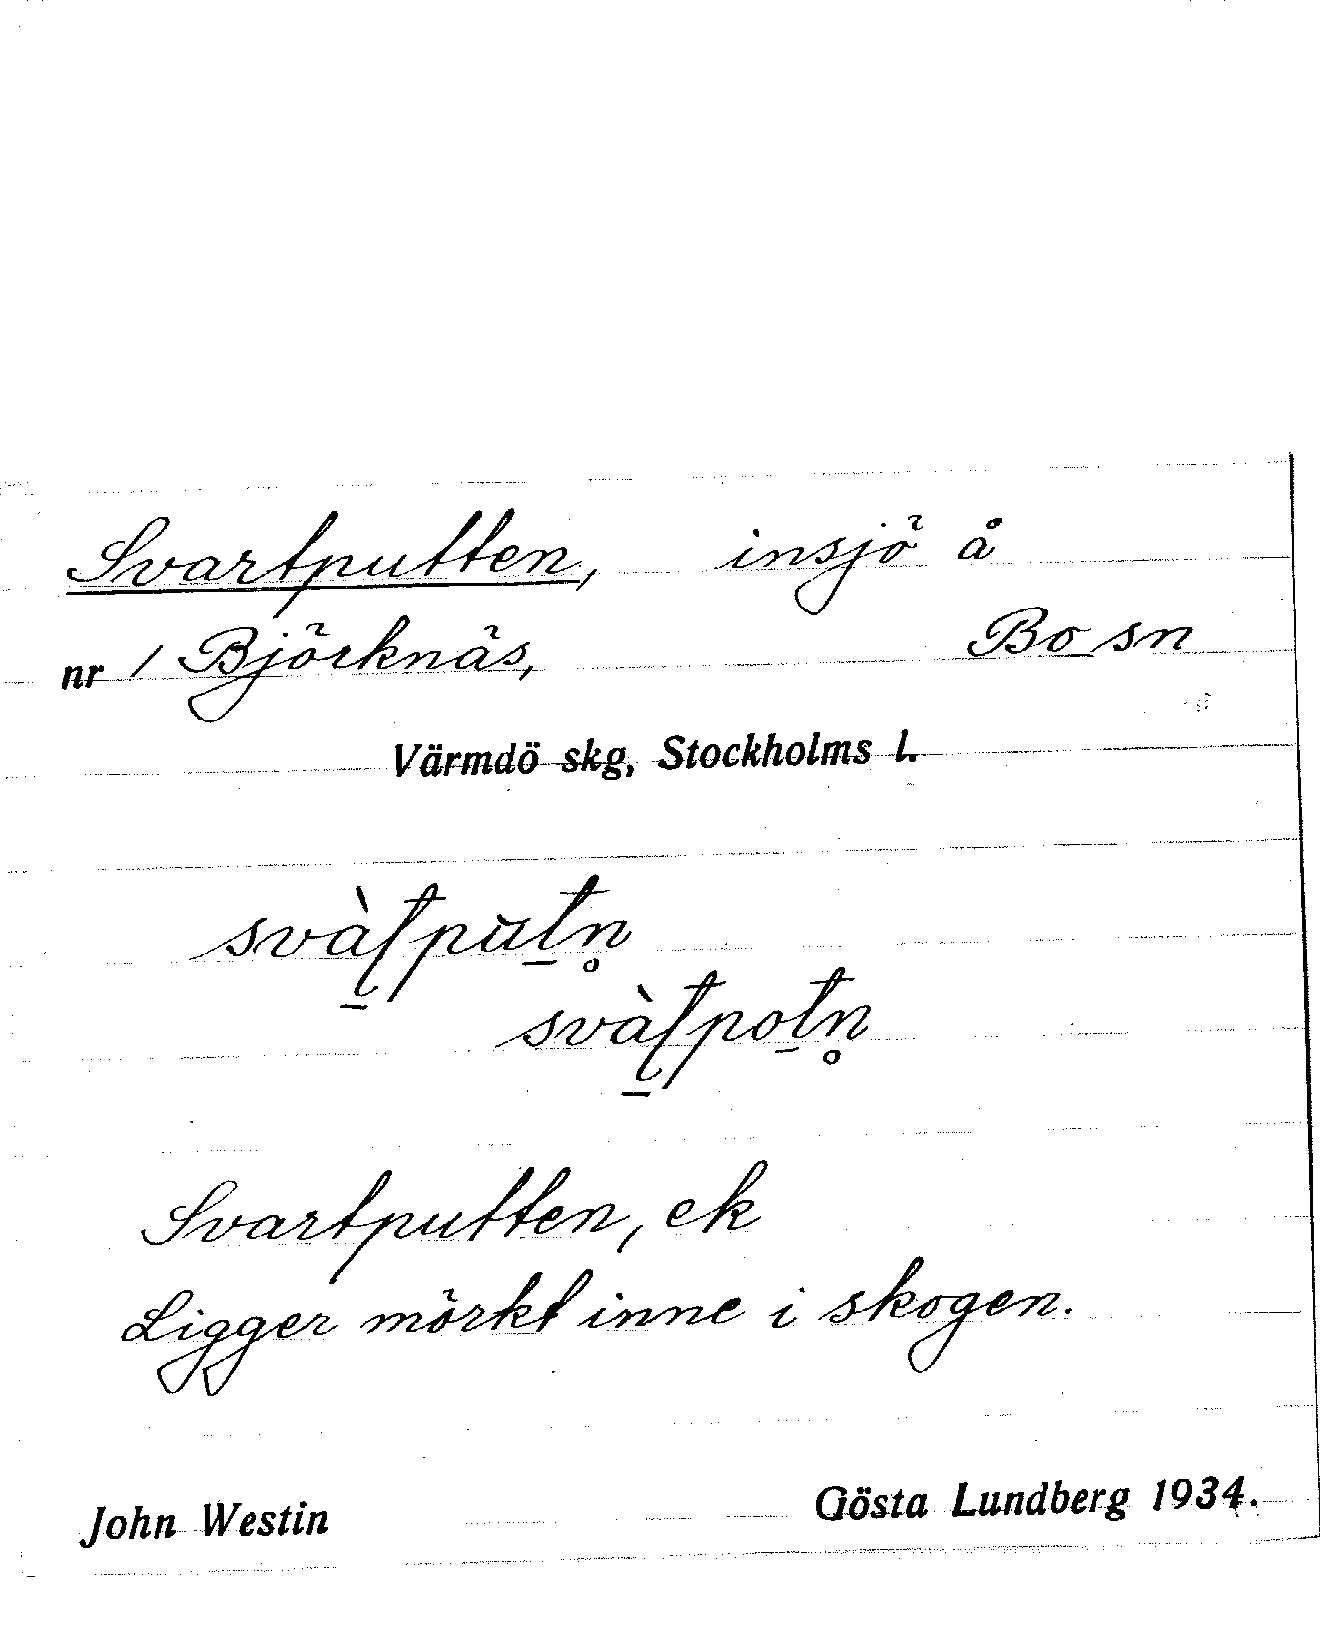 Svartputten, insjö å
nr 1 Björknäs, Bo sn
Värmdö skg, Stockholms l.
Svartputten, ek
Ligger mörkt inne i skogen.
John Westin Gösta Lundberg 1934.